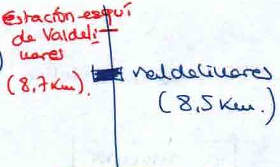 estación esquí
de Valdeli
nares
(8,7 Km).
Valdelinares
(8,5 Km.)